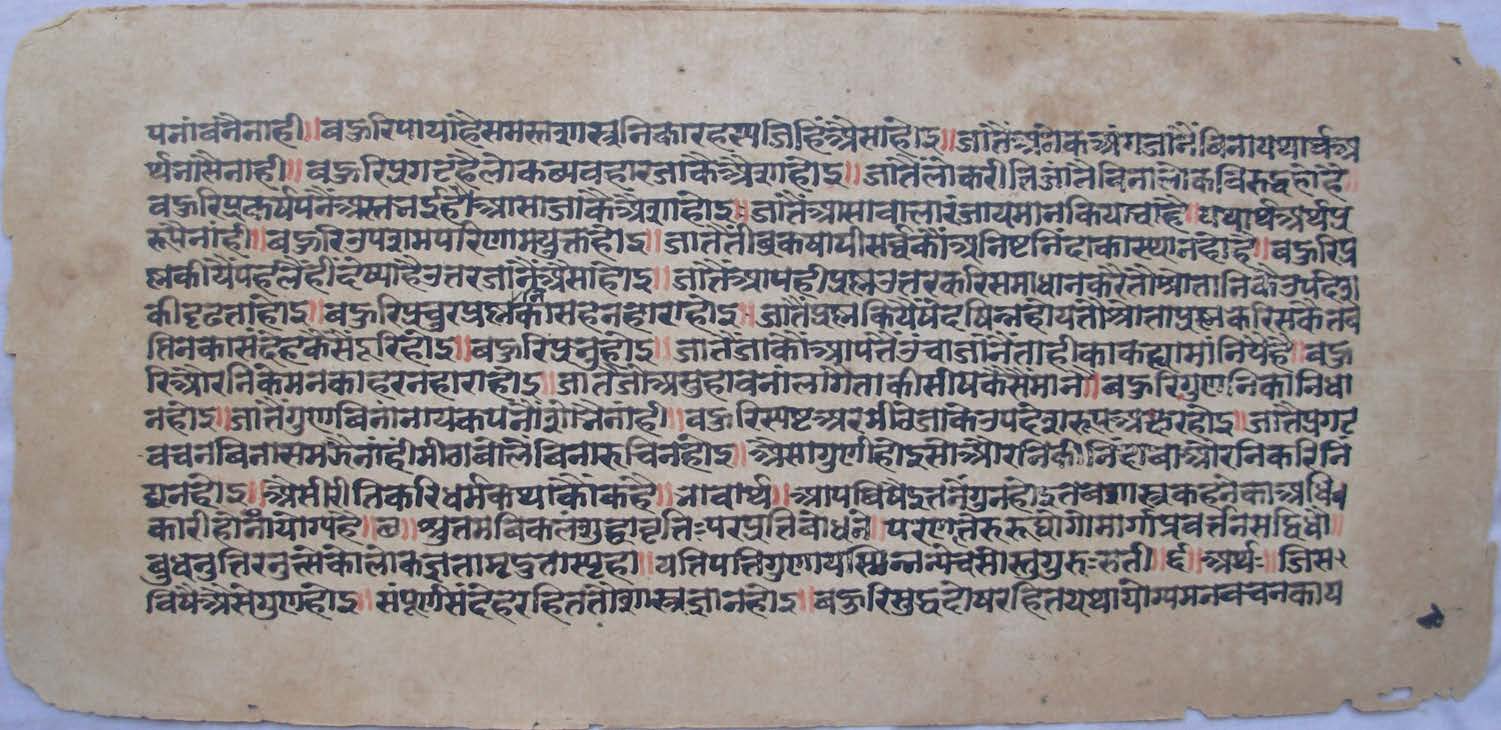 पनांबनैनाही॥बहुरिपायाहैसमस्तशास्त्रनिकारहस्यजिहिंअैसाहोइ॥जातैंअनेकअंगजांनैंबिनायथार्थअ
र्थनांसैनाही॥बहुरिप्रगटहैलोकव्यवहारजाकैअैसाहोइ॥जातैंलोकरीतिजांनैबिनालोकविरुद्धहोहै॥
बहुरिप्रकर्षपनैंअस्तनईहैआसाजाकैंअैसाहोइ॥जातैंआसावालारंजायमानकियाचाहै॥यथार्थअर्थप्र
रूपैनांही॥बहुरिउपशमपरिणामयुक्तहोइ॥जातैतीव्रकषायीसर्वकौंअनिष्टनिंदाकास्थानहोहै॥बहुरिप्र
श्नकीयैंपहलैहीदेष्याहैउतरजांनैंअैसाहोइ॥जातैंआपहीप्रश्नउत्तरकरिसमाधानकरैतौश्रोतानिकैउपदेश
कीदृढताहोइ॥बहुरिप्रचुरप्रश्ननिकासहनहाराहोइ॥जातैंप्रश्नकियैंषेदषिन्नहोयतौश्रोताप्रश्नकरिसकैनब
तिनकासंदेहकैसैंदूरिहोइ॥बहुरिप्रभुहोइ॥जातैंजाकौंआपतैंउंचाजांनैंताहीकाकह्यामांनियैहै॥बहु
रिऔरनिकेमनकाहरनहाराहोइ॥जातैंजोअसुहावनांलागैताकीसीषकैसैंमानै॥बहुरिगुणनिकानिधा
नहोइ॥जातैंगुणबिनानायकपनोंशोभैनाही॥बहुरिस्पष्टअरमीठेजाकेउपदेशरूपअक्षरहोइ॥जातैप्रगट
वचनबिनासमझैनांहीमीठाबोलैंबिनारुचिनहोइ॥अैसागुणीहोइसोऔरनिकीनिंदावाऔरनिकरिनिं
द्यनहोइ॥अैसीरीतिकरिधर्मकथाकौंकहै॥भावार्थ॥आपविषैइतनेंगुनहोइतबशास्त्रकहनेकाअधि
कारीहोनांयोग्यहै॥छ॥श्रुतमविकलंशुद्धावृत्तिःपरप्रतिबोधने॥परणतिरुरुद्योगोमार्गप्रवर्त्तनसद्विधौ॥
बुधनुतिरनुत्सेकोलोकज्ञतामृदुतास्पृहा॥यतिपतिगुणायस्मिन्नन्येचसोस्तुगुरुःसतां॥६॥अर्थः॥जिस
विषैअैसेगुणहोइ॥संपूर्णसंदेहरहिततौशास्त्रज्ञानहोइ॥बहुरिसुद्धदोषरहितयथायोग्यमनवचनकाय